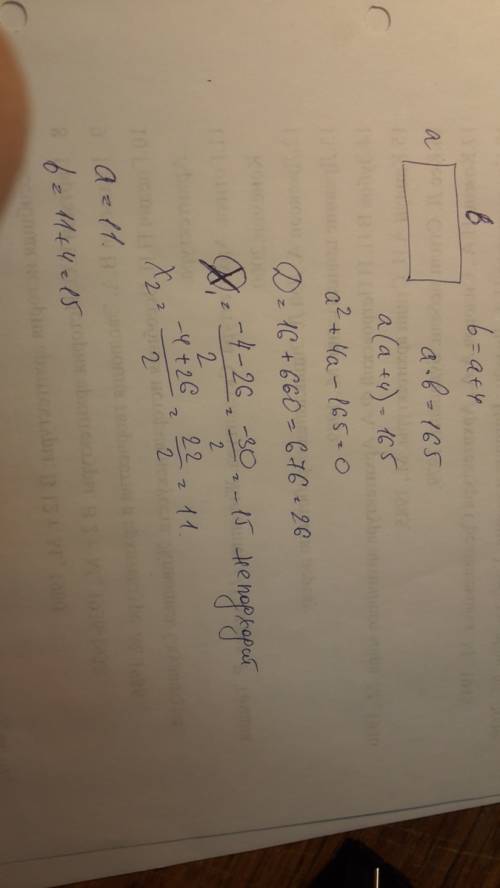 a
b
b = a+4
a·b = 165
a(a+4) = 165
a²+4a-165=0
D = 16+660 = 676 = 26
X₁ = (-4-26)/2 = -30/2 = -15
X₂ = (-4+26)/2 = 22/2 = 11.
a = 11.
b = 11+4 = 15